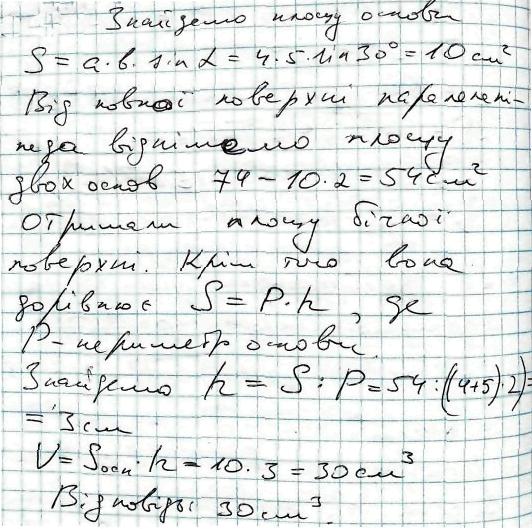 Знайдемо площу основи
S = a·b·sin α = 4·5·sin 30° = 10 см²
Від повної поверхні паралелепі-
педа віднімемо площу
двох основ 74 – 10·2 = 54 см²
Отримали площу бічної
поверхні. Крім того вона
дорівнює S = P·h, де
P – периметр основи.
Знайдемо h = S : P = 54 : ((4+5)·2) =
= 3 см
V = Sосн·h = 10·3 = 30 см³
Відповідь: 30 см³.